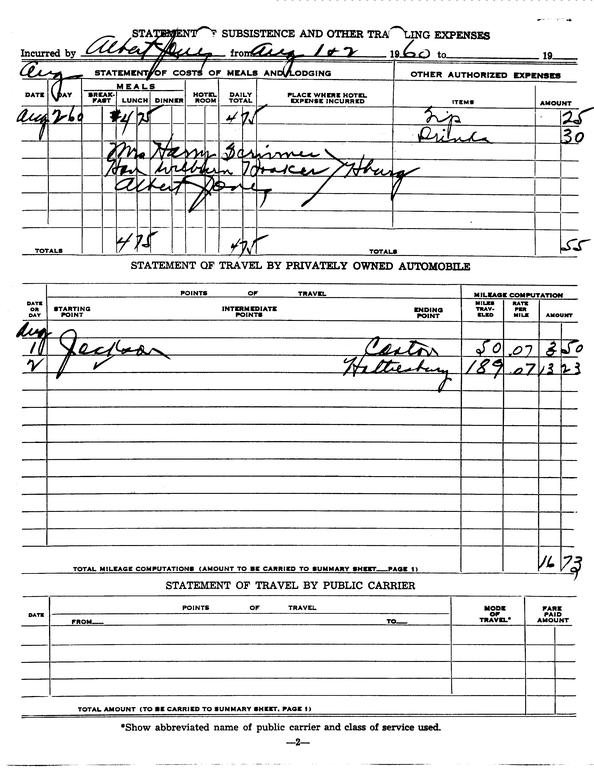 STATEMENT OF SUBSISTENCE AND OTHER TRAVELING EXPENSES
Incurred by Albert Jones from Aug 1 & 2 1960 to 19
Aug STATEMENT OF COSTS OF MEALS AND LODGING OTHER AUTHORIZED EXPENSES
DATE DAY MEALS BREAK-FAST LUNCH DINNER HOTEL ROOM DAILY TOTAL PLACE WHERE HOTEL EXPENSE INCURRED ITEMS AMOUNT
Aug 2 60 $4 75 4 75 Tip 25
Drinks 30
Mrs Harry
Hon Wilburn Hooker Hburg
Albert Jones
TOTALS 4 75 4 75 TOTALS 55
STATEMENT OF TRAVEL BY PRIVATELY OWNED AUTOMOBILE
POINTS OF TRAVEL MILEAGE COMPUTATION
DATE OR DAY STARTING POINT INTERMEDIATE POINTS ENDING POINT MILES TRAV-ELED RATE PER MILE AMOUNT
Aug
1 Jackson Canton 50 .07 3 50
2 Hattiesburg 189 .07 13 23
TOTAL MILEAGE COMPUTATIONS (AMOUNT TO BE CARRIED TO SUMMARY SHEET PAGE 1) 16 73
STATEMENT OF TRAVEL BY PUBLIC CARRIER
DATE POINTS OF TRAVEL MODE OF TRAVEL* FARE PAID AMOUNT
FROM TO
TOTAL AMOUNT (TO BE CARRIED TO SUMMARY SHEET, PAGE 1)
*Show abbreviated name of public carrier and class of service used.
—2—